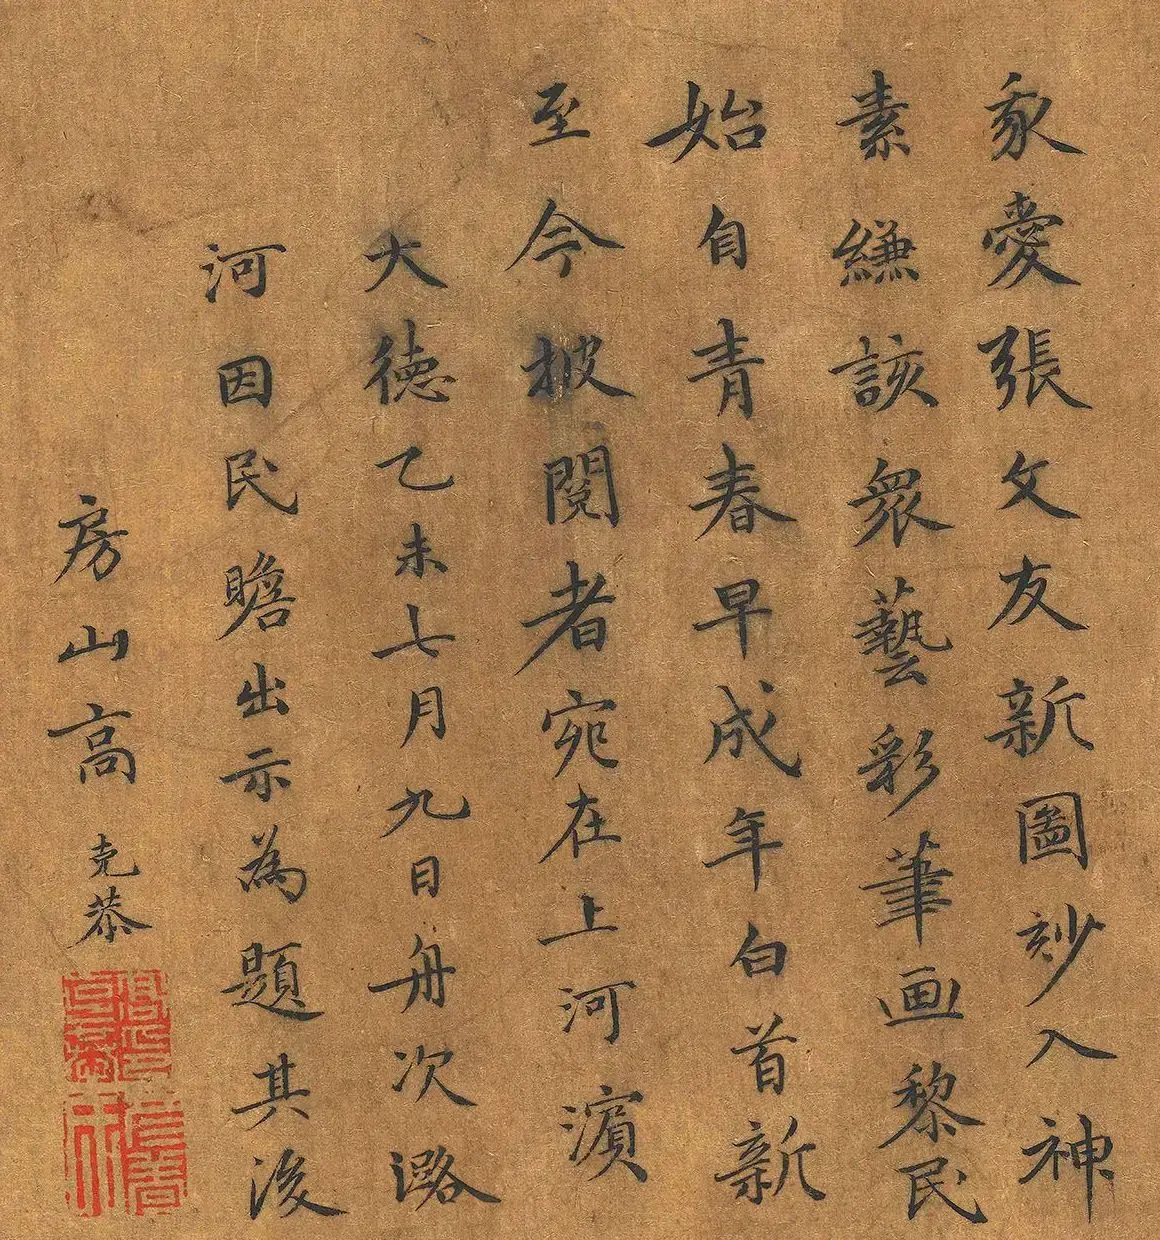 我愛張文友新圖妙入神
素縑該衆藝彩筆画黎民
始自青春早成年白首新
至今披閱者宛在上河濱
大德乙未七月九日舟次潞
河因民瞻出示為題其後
房山高克恭